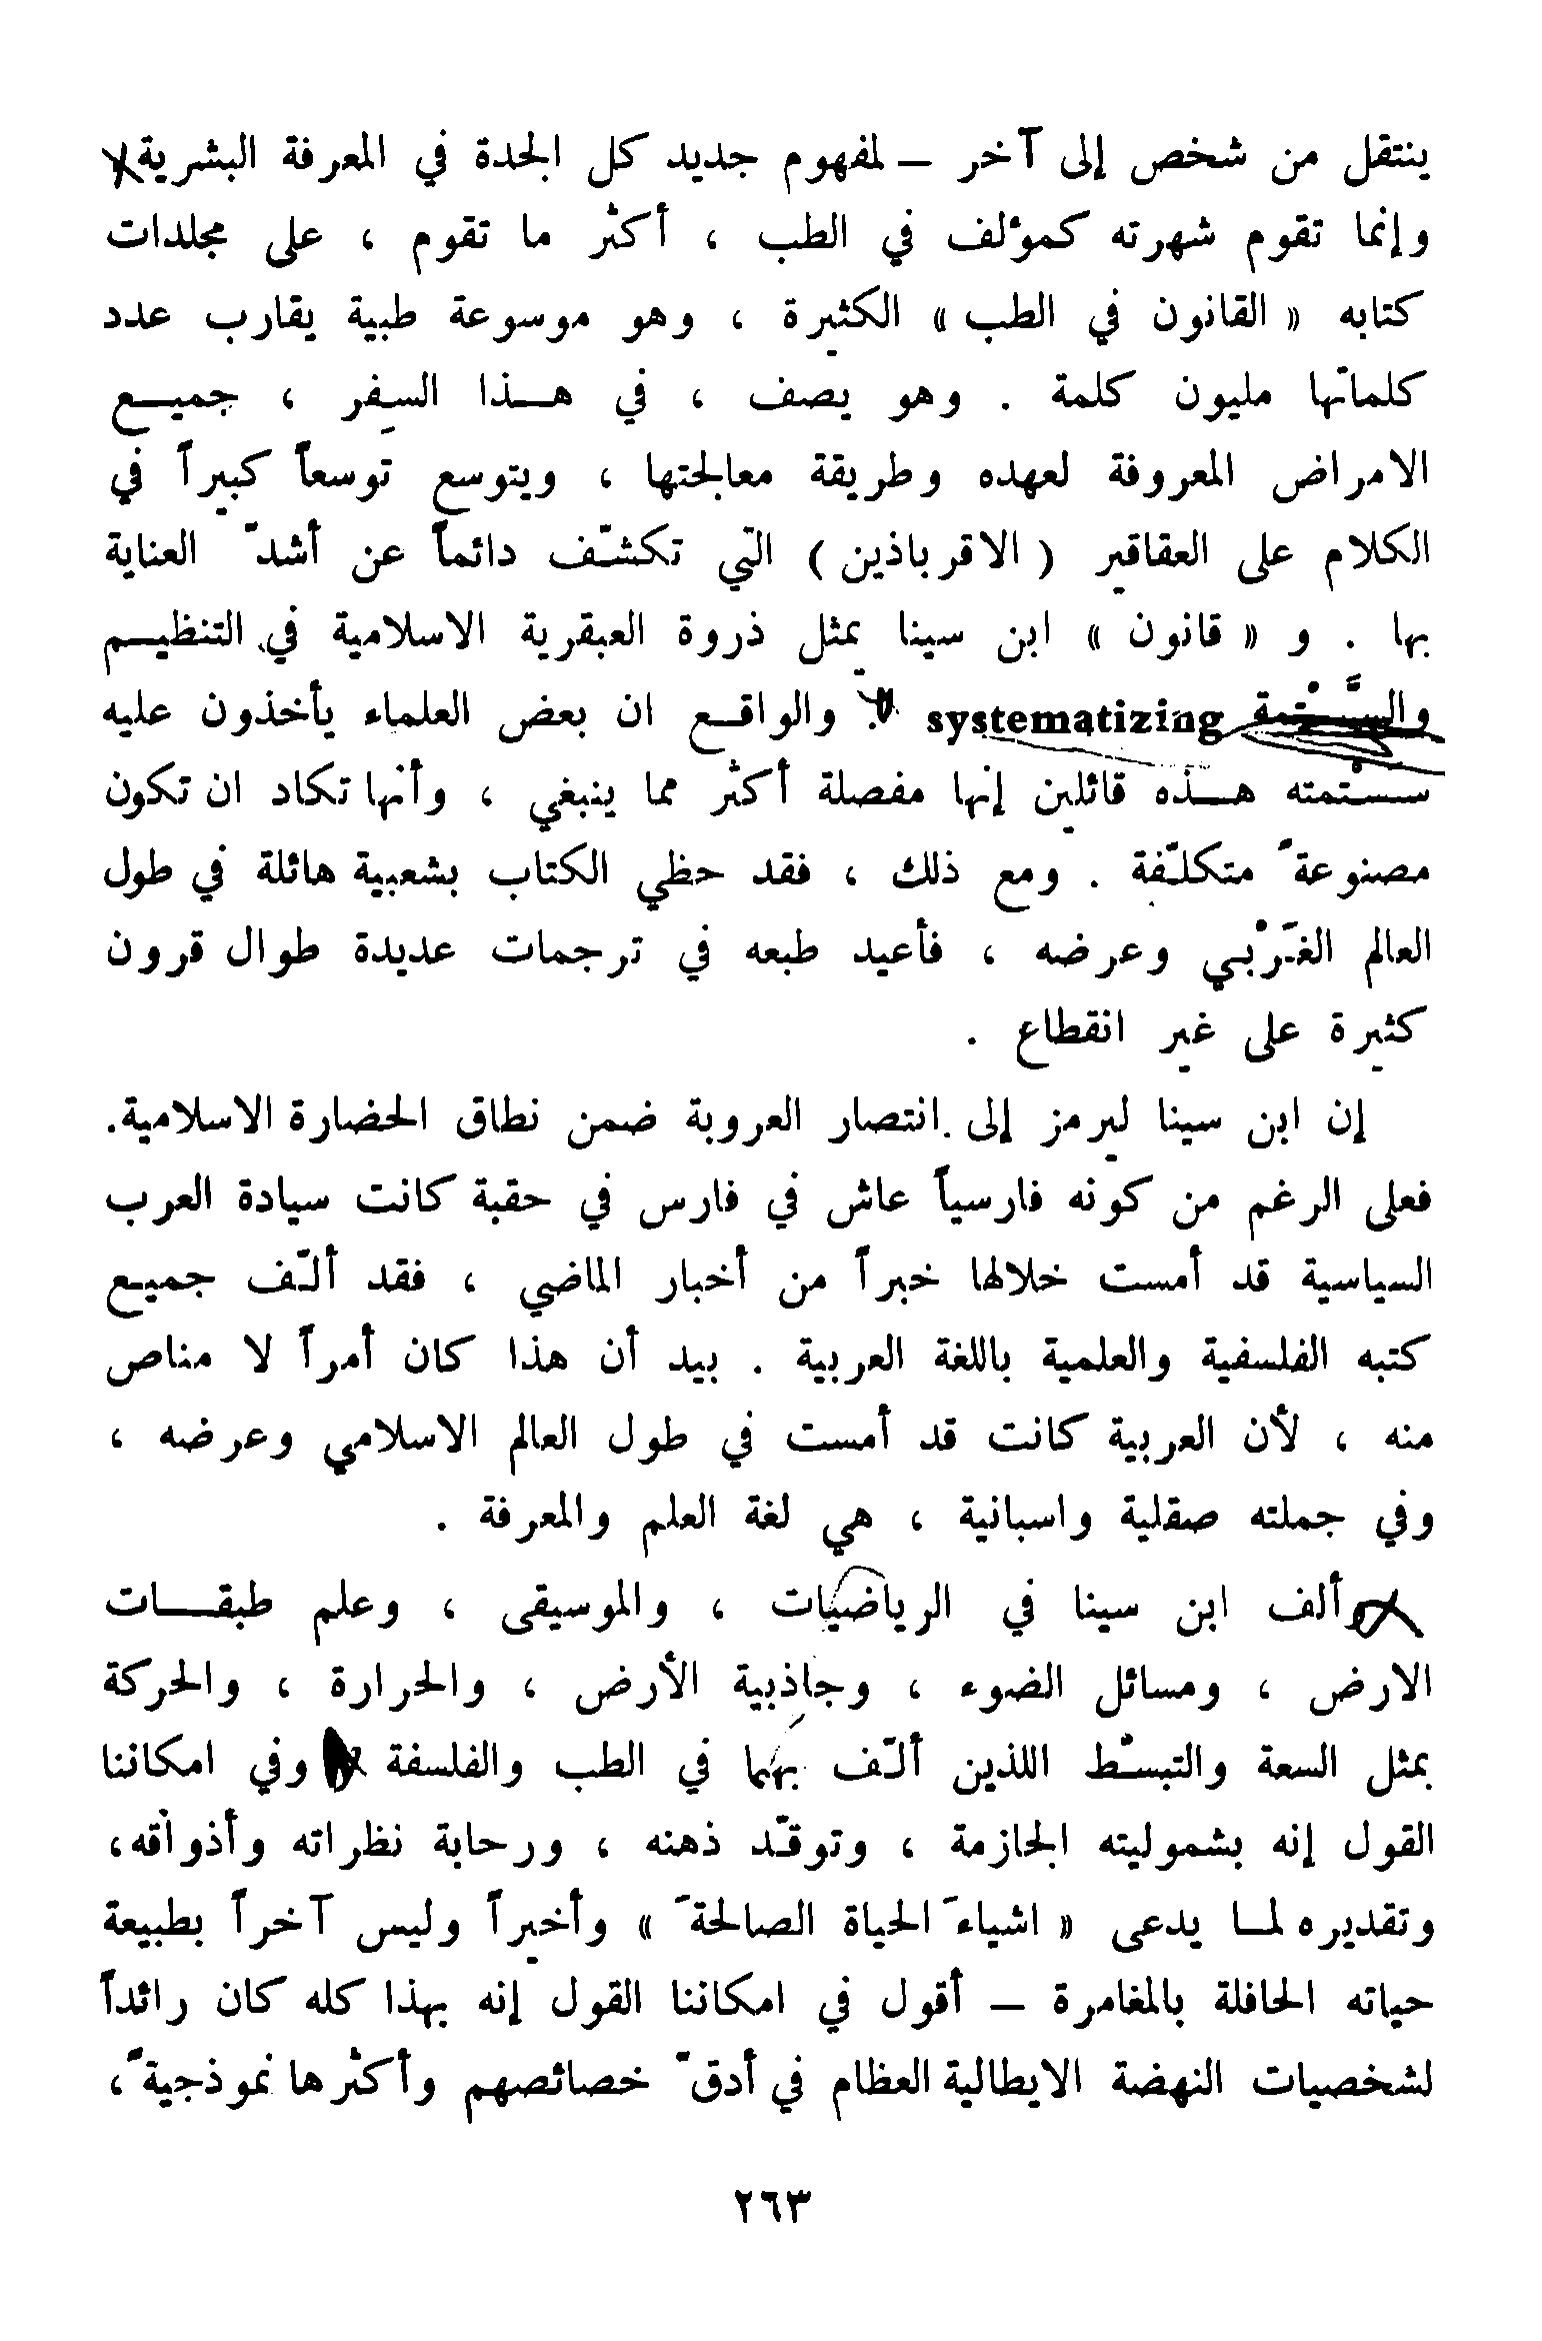 ينتقل من شخص إلى آخر – لمفهوم جديد كل الجدة في المعرفة البشرية
وإنما تقوم شهرته كمؤلف في الطب ، أكثر ما تقوم ، على مجلدات
كتابه « القانون في الطب » الكثيرة ، وهو موسوعة طبية يقارب عدد
كلماتها مليون كلمة . وهو يصف ، في هـذا السِفر ، جميـع
الامراض المعروفة لعهده وطريقة معالجتها ، ويتوسع توسعاً كبيراً في
الكلام على العقاقير ( الاقرباذين ) التي تكشّف دائماً عن أشدّ العناية
بها . و « قانون » ابن سينا يمثل ذروة العبقرية الاسلامية في التنظيـم
والسَّسْتمة systematizing . والواقـع ان بعض العلماء يأخذون عليه
سسْتمته هـذه قائلين إنها مفصلة أكثر مما ينبغي ، وأنها تكاد ان تكون
مصنوعةً متكلّفة . ومع ذلك ، فقد حظي الكتاب بشعبية هائلة في طول
العالم الغَرْبي وعرضه ، فأعيد طبعه في ترجمات عديدة طوال قرون
كثيرة على غير انقطاع .
إن ابن سينا ليرمز إلى انتصار العروبة ضمن نطاق الحضارة الاسلامية.
فعلى الرغم من كونه فارسياً عاش في فارس في حقبة كانت سيادة العرب
السياسية قد أمست خلالها خبراً من أخبار الماضي ، فقد ألّف جميـع
كتبه الفلسفية والعلمية باللغة العربية . بيد أن هذا كان أمراً لا مناص
منه ، لأن العربية كانت قد أمست في طول العالم الاسلامي وعرضه ،
وفي جملته صقلية واسبانية ، هي لغة العلم والمعرفة .
ألف ابن سينا في الرياضيات ، والموسيقى ، وعلم طبقـات
الارض ، ومسائل الضوء ، وجاذبية الأرض ، والحرارة ، والحركة
بمثل السعة والتبسّط اللذين ألّف بهما في الطب والفلسفة وفي امكاننا
القول إنه بشموليته الجازمة ، وتوقّد ذهنه ، ورحابة نظراته وأذواقه،
وتقديره لمـا يدعى « اشياءَ الحياة الصالحةَ » وأخيراً وليس آخراً بطبيعة
حياته الحافلة بالمغامرة – أقول في امكاننا القول إنه بهذا كله كان رائداً
لشخصيات النهضة الايطالية العظام في أدقّ خصائصهم وأكثرها نموذجيةً،
٢٦٣